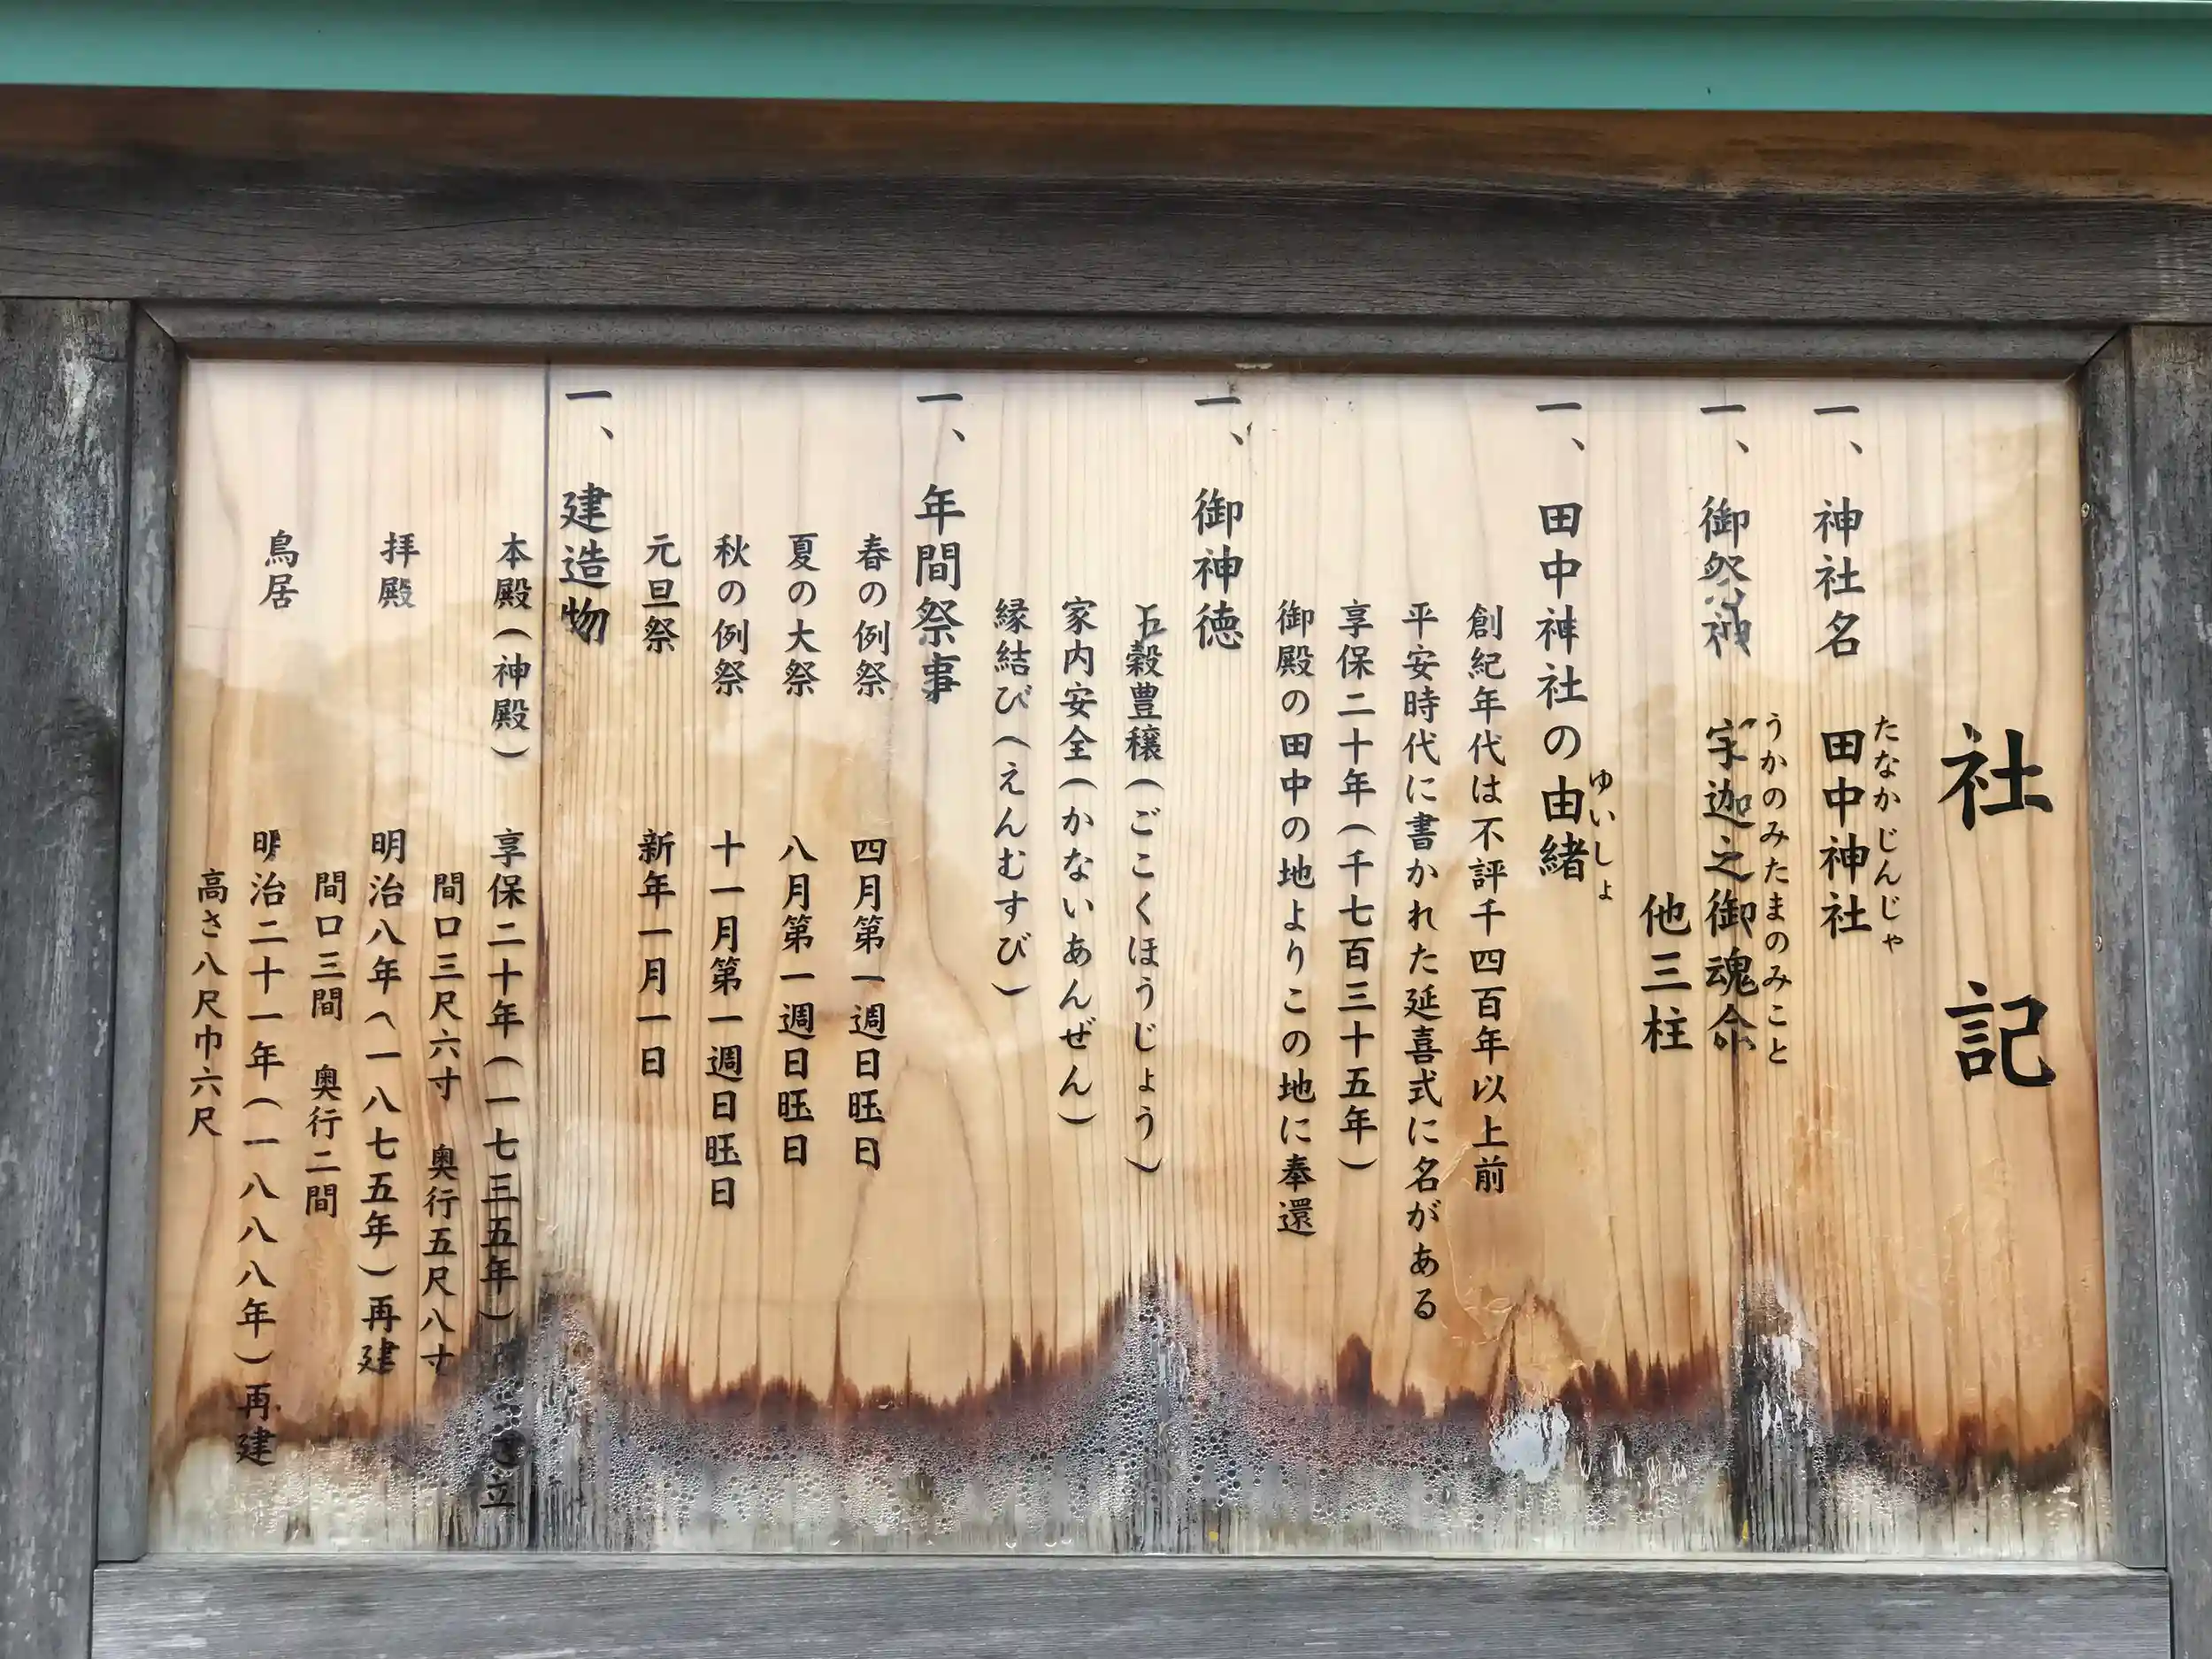 社記
一、神社名 田中神社
たなかじんじゃ
一、御祭神 宇迦之御魂命
うかのみたまのみこと
他三柱
一、田中神社の由緒
ゆいしょ
創紀年代は不評千四百年以上前
平安時代に書かれた延喜式に名がある
享保二十年(千七百三十五年)
御殿の田中の地よりこの地に奉還
一、御神徳
五穀豊穣(ごこくほうじょう)
家内安全(かないあんぜん)
縁結び(えんむすび)
一、年間祭事
春の例祭 四月第一週日旺日
夏の大祭 八月第一週日旺日
秋の例祭 十一月第一週日旺日
元旦祭 新年一月一日
一、建造物
本殿(神殿) 享保二十年(一七三五年) 立
間口三尺六寸 奥行五尺八寸
拝殿 明治八年(一八七五年)再建
間口三間 奥行二間
鳥居 明治二十一年(一八八八年)再建
高さ八尺巾六尺